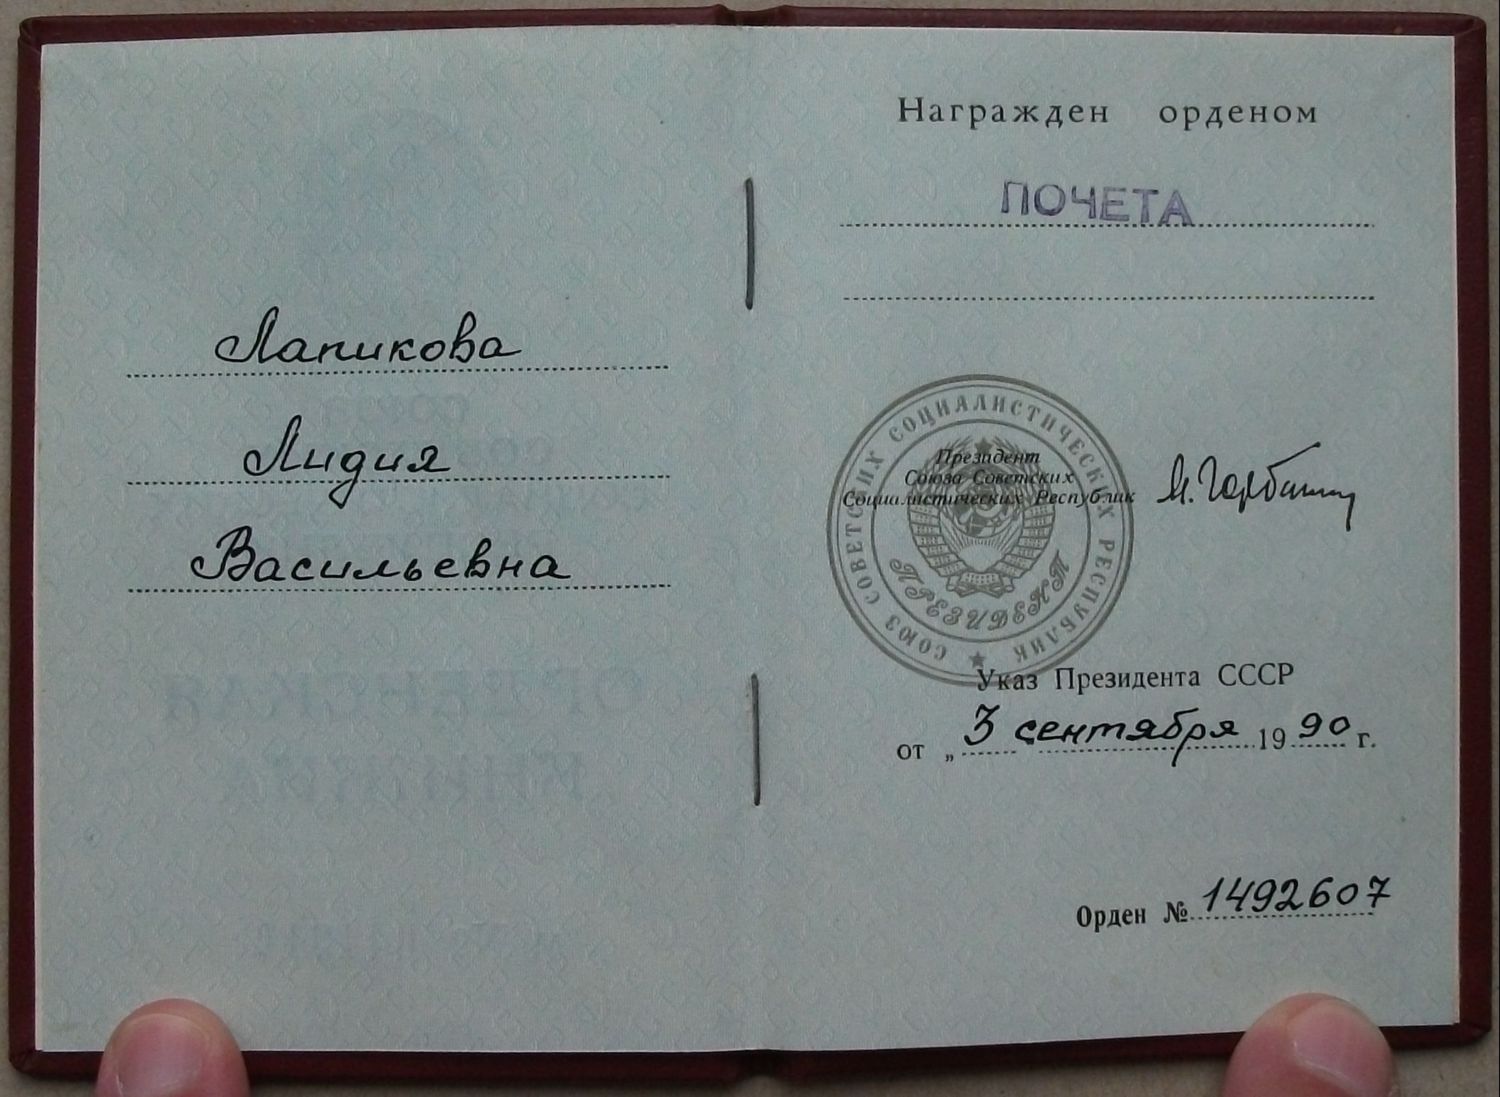 Лапикова
Лидия
Васильевна
Награжден орденом
ПОЧЕТА
Президент
Союза Советских
Социалистических Республик
М. Горбачев
СОЮЗ СОВЕТСКИХ СОЦИАЛИСТИЧЕСКИХ РЕСПУБЛИК
ПРЕЗИДЕНТ
Указ Президента СССР
от „ 3 сентября 1990 г.
Орден № 1492607